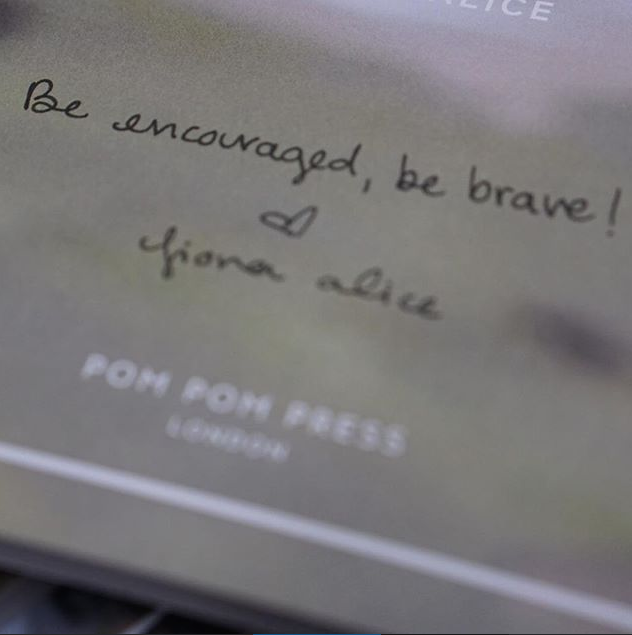 ALICE
Be encouraged, be brave!
fiona alice
POM POM PRESS
LONDON